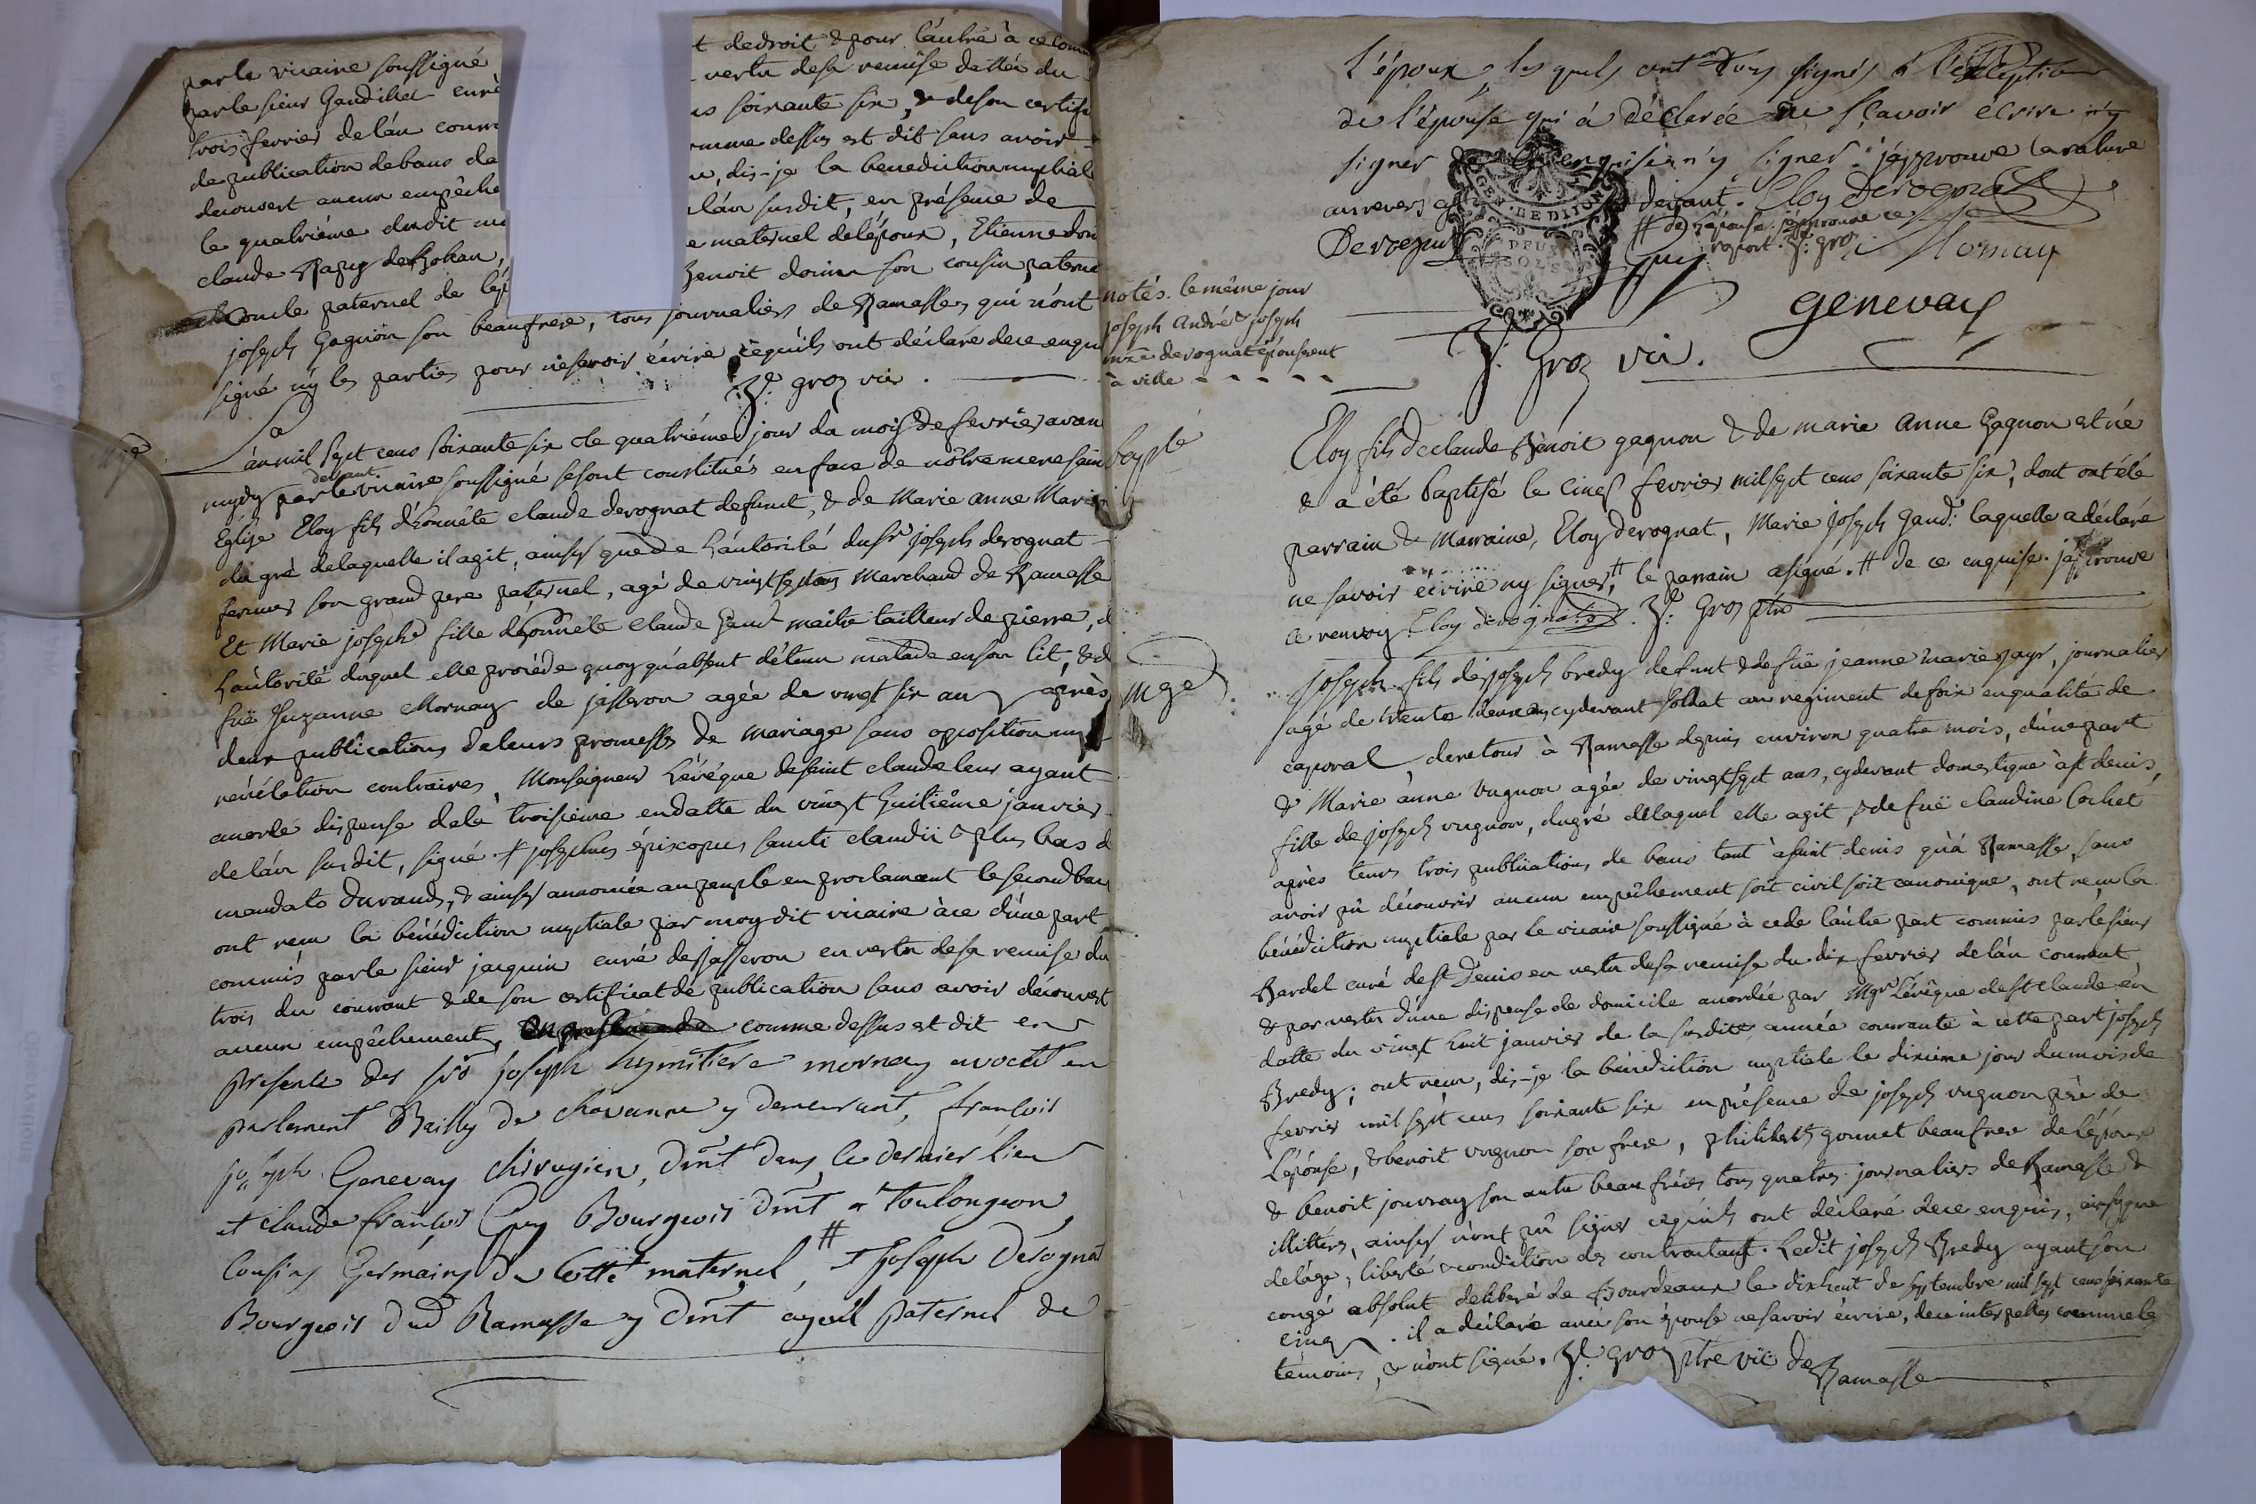 par le vicaire soussigné
par le sieur Gandillet curé
trois fevrier de l'án cour
de publication de bans de
decouvert aucun empêche
le quatriéme dudit m
claude Razuy de Rohan,
oncle paternel de l'ép
joseph Gagnon son beaufrere, tous journaliers de Ramasse, qui n'ont
signé n'y les parties pour ne savoir écrire cequ'ils ont déclaré de ce enqu
t de droit & pour l'autre à ce com
vertu de sa remise dattée du
s soixante six, & de son certifi
omme dessus est dit sans avoir
u, dis-je la benediction nuptiale
l'án susdit, en présence de
e maternel de l'époux, Etienne don
Benoit donin son cousin paterne
J. groz vic.
L'an mil sept cens soixante six le quatriéme jour du mois de fevrier avan
midy pardevant le vicaire soussigné se sont constitués en face de nôtre mere sain
Eglise Eloy fils d'honnête claude derognat defunct, & de Marie anne Mari
du gré de laquelle il agit, ainsy que de l'áutorité du sr joseph derognat
fermier son grand pere paternel, agé de vingt sept ans Marchand de Ramasse
Et Marie joseph fille d'honnête claude Gaud maitre tailleur de pierre, d
L'áutorité duquel elle procéde quoy qu'absent détenu malade en son lit, & d
fuë Suzanne Mornay de jasseron agée de vingt six ans après
deux publications de leurs promesses de mariage sans oposition ny
révélation contraires, Monseigneur L'évêque de saint claude leur ayant
accordé dispense de la troisieme en datte du vingt huitiéme janvier
de l'án susdit, signé + josephus épiscopus sancti claudii & plus bas d
mandato durand, & ainsy annoncée au peuple en proclamant le second ban
ont reçu la bénédiction nuptiale par moy dit vicaire à ce d'úne part
commis par le sieur jacquin curé de jasseron en vertu de sa remise du
trois du courant & de son certificat de publication sans avoir découvert
aucun empêchement, en presence de comme dessus est dit en
presence des srs joseph hymitiere mornay avocat en
parlement Bailly de chavanne y demeurant, francois
joseph Genevay chirugien, dmt dans ce dernier lieu
et claude françois Guy Bourgeois dmt a Toulongeon
Cousins Germains du Cotté maternel, # & joseph Derognat
Bourgeois dud Ramasse y dmt ayeul paternel de
notés. le même jour
joseph André & joseph
derognat épousent
à ville
L'époux, les quels ont tous signés à l'exception
de l'épouse qui a déclarée ne sçavoir écrire n'y
signer de ce enquise n'y signer. j'approuve la rature
au revers et devant. Eloy Derognat
Derognat # de l'épouse j'approuve ce
report. J. groz
Guy Mornay
Genevay
J. Groz vic.
GEN. DE DIJON
DEUX
SOLS
bapte
Eloy fils de claude Benoit gagnon & de marie anne Gagnon est né
& a été baptisé le cinq fevrier mil sept cens soixante six, dont ont été
parrain & Marraine, Eloy derognat, Marie joseph Gaud: laquelle a déclaré
ne savoir écrire ny signer, # le parrain a signé. # de ce enquise. j'approuve
ce renvoy. Eloy derognat. J. Groz ptre
mge
joseph fils de joseph bredy defunt & de fuë jeanne marie jayr, journalier
agé de trente deux ans cy devant soldat au regiment de foix en qualité de
caporal, de retour à Ramasse depuis environ quatre mois, d'úne part
& Marie anne Vugnon agée de vingt sept ans, cy devant domestique à st denis,
fille de joseph vugnon, du gré de laquel elle agit, & de fuë claudine Cochet
après leurs trois publications de bans tant à saint denis qu'à Ramasse, sans
avoir pû découvrir aucun empêchement soit civil soit canonique, ont reçu la
bénédiction nuptiale par le vicaire soussigné à ce de l'áutre part commis par le sieur
Bardel curé de st Denis en vertu de sa remise du dix fevrier de l'án courant
& par vertu d'une dispense de domicile accordée par Mgr L'évêque de st claude en
datte du vingt huit janvier de la susditte année courante à cette part joseph
Bredy; ont reçu, dis-je la bénédiction nuptiale le dixième jour du mois de
fevrier mil sept cens soixante six en présence de joseph vugnon pere de
L'épouse, & benoit vugnon son frere, philibert gonnet beaufrere de l'époux
& benoit jouvray son autre beaufrére tous quatres journaliers de Ramasse &
illitérés, ainsy n'ont pû signer cequ'ils ont déclaré de ce enquis, ainsy que
de l'áge, liberté & condition des contractant. Ledit joseph Bredy ayant son
congé absolut deliberé de Bourdeaux le dix huit de septembre mil sept cens soixante
cinq. il a déclaré avec son épouse ne savoir écrire, de ce interpellés comme les
témoins, & n'ont signé. J. groz ptre vic de
Ramasse